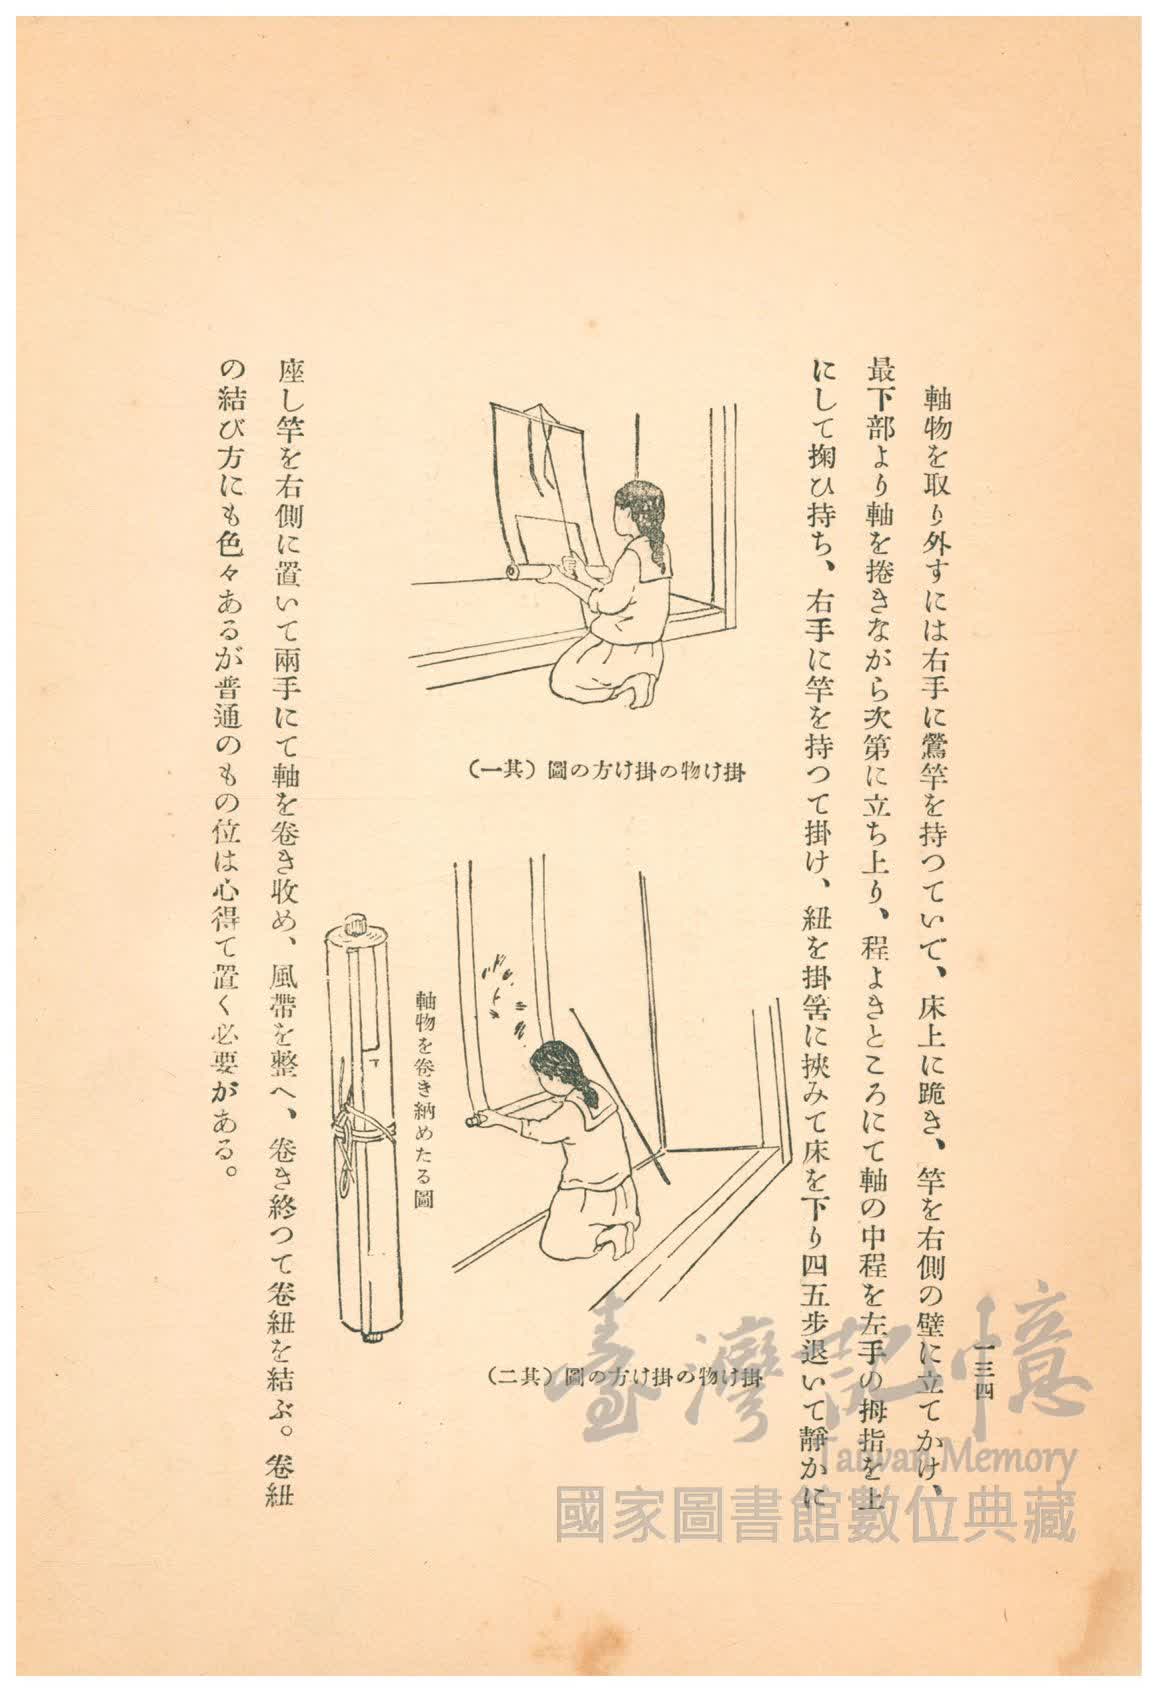 一三四
軸物を取り外すには右手に鶯竿を持つていで、床上に跪き、竿を右側の壁に立てかけ、
最下部より軸を捲きながら次第に立ち上り、程よきところにて軸の中程を左手の拇指を上
にして掬ひ持ち、右手に竿を持つて掛け、紐を掛筈に挾みて床を下り四五步退いて靜かに
掛け物の掛け方の圖(其一)
掛け物の掛け方の圖(其二)
軸物を卷き納めたる圖
座し竿を右側に置いて兩手にて軸を卷き收め、風帶を整へ、卷き終つて卷紐を結ぶ。卷紐
の結び方にも色々あるが普通のもの位は心得て置く必要がある。
臺灣記憶
Taiwan Memory
國家圖書館數位典藏